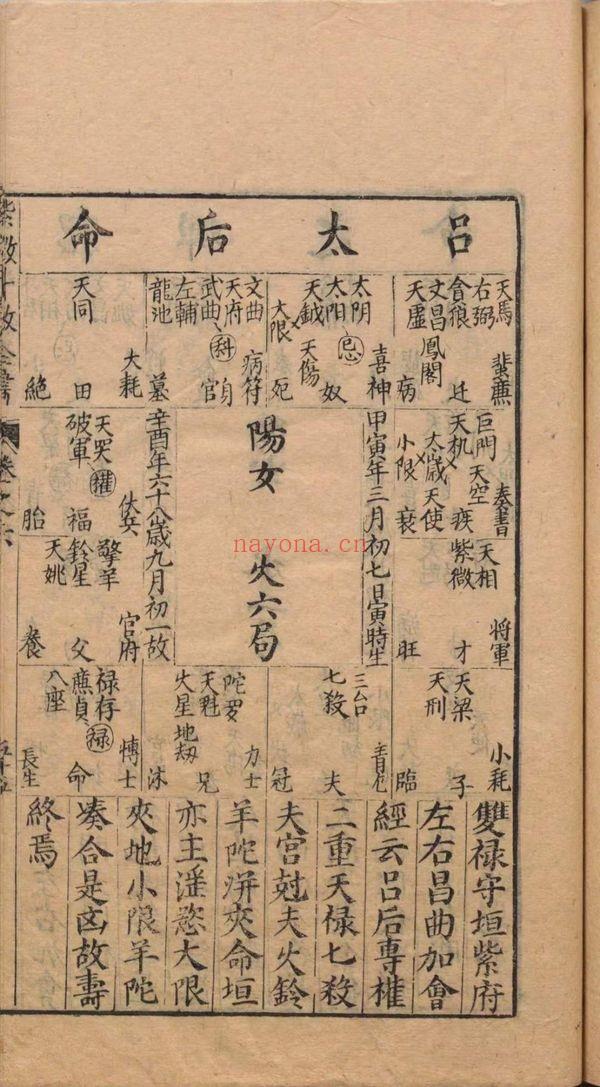 呂太后命
天馬
右弼
貪狼
文昌
天虛
鳳閣
蜚廉
迁
病
太阴
太阳
忌
天鉞
天傷
大限
喜神
奴
死
文曲
天府
武曲
科
左輔
龍池
病符
身
官
墓
天同
大耗
田
絶
巨門
天机
天空
太歲
天使
小限
奏書
疾
衰
甲寅年三月初七日寅時生
陽女 火六局
辛酉年六十八歲九月初一故
天哭
破軍
權
伏兵
福
胎
天相
紫微
將軍
才
旺
擎羊
鈴星
天姚
官府
父
養
天梁
天刑
小耗
子
臨
三台
七殺
夫
冠
陀罗
天魁
火星
地劫
力士
兄
沐
禄存
廉貞
禄
八座
博士
命
長生
雙禄守垣紫府
左右昌曲加會
經云呂后專權
二重天禄七殺
夫宮尅夫火鈴
羊陀洴夾命垣
亦主滛慾大限
夾地小限羊陀
湊合是凶故壽
終焉
紫微斗数全書
卷之六
nayona.cn